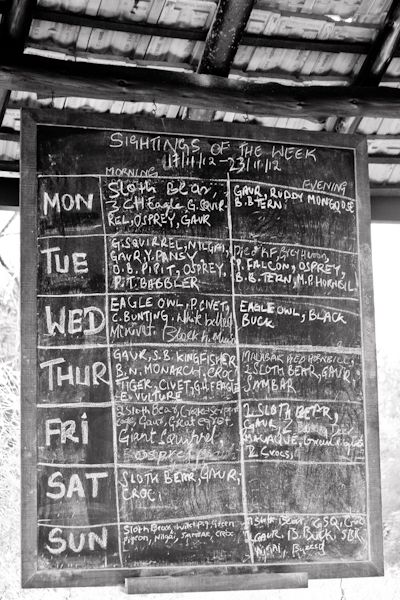 SIGHTINGS OF THE WEEK
17/11/12 - 23/11/12
MORNING
EVENING
MON
Sloth Bear,
CH Eagle, G. SQUIR-
REL, OSPREY, GAUR
GAUR, RUDDY MONGOOSE
B.B TERN,
TUE
G. SQUIRREL, NILGAI,
GAUR, Y. PANSY,
O.B. PIPIT, OSPREY,
P.T. BABBLER
P. FALCON, OSPREY,
B.B. TERN, M.P. HORNBILL.
WED
EAGLE OWL, P. CIVET,
C. BUNTING, white bellied
Minivet, Black h.
EAGLE OWL, BLACK
BUCK
THUR
GAUR, S.B. KINGFISHER
B.N. MONARCH, CROC
TIGER, CIVET, G.H. FEAST
E. VULTURE
MALABAR PIED HORNBILL,
2 SLOTH BEAR, GAUR,
SAMBAR
FRI
2 Sloth Bear, Crested Serpent
Gaur, Great egret,
Giant Squirrel,
2 SLOTH BEAR,
GAUR, 2
MACAQUE,
2 Crocs,
SAT
SLOTH BEAR, GAUR,
CROC,
SUN
Sloth Bear, wild pig, green
pigeon, Nilgai, Sambar, Croc
Sloth Bear, G.SQ,
GAUR, B. Buck, SBK
Nilgai,